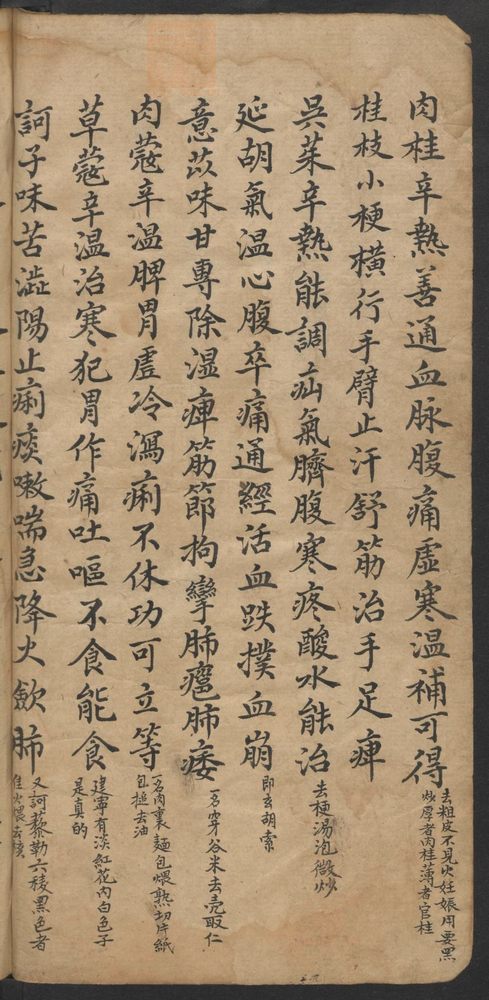 肉桂辛熱善通血脉腹痛虛寒温補可得
去粗皮不見火妊娠用要黑
炒厚者肉桂薄者官桂
桂枝小梗橫行手臂止汗舒筋治手足痺
吳茱辛熱能調疝氣臍腹寒疼酸水能治
去梗湯泡微炒
延胡氣温心腹卒痛通經活血跌撲血崩
即玄胡索
意苡味甘專除湿痺筋節拘攣肺癰肺痿
一名穿谷米去壳取仁
肉蔻辛温脾胃虛冷瀉痢不休功可立等
一名肉菓麺包煨熟切片紙
包搥去油
草蔻辛温治寒犯胃作痛吐嘔不食能食
建寧有淡紅花內白色子
是真的
訶子味苦澁腸止痢痰嗽喘急降火歛肺
又訶藜勒六稜黑色者
佳火煨去核